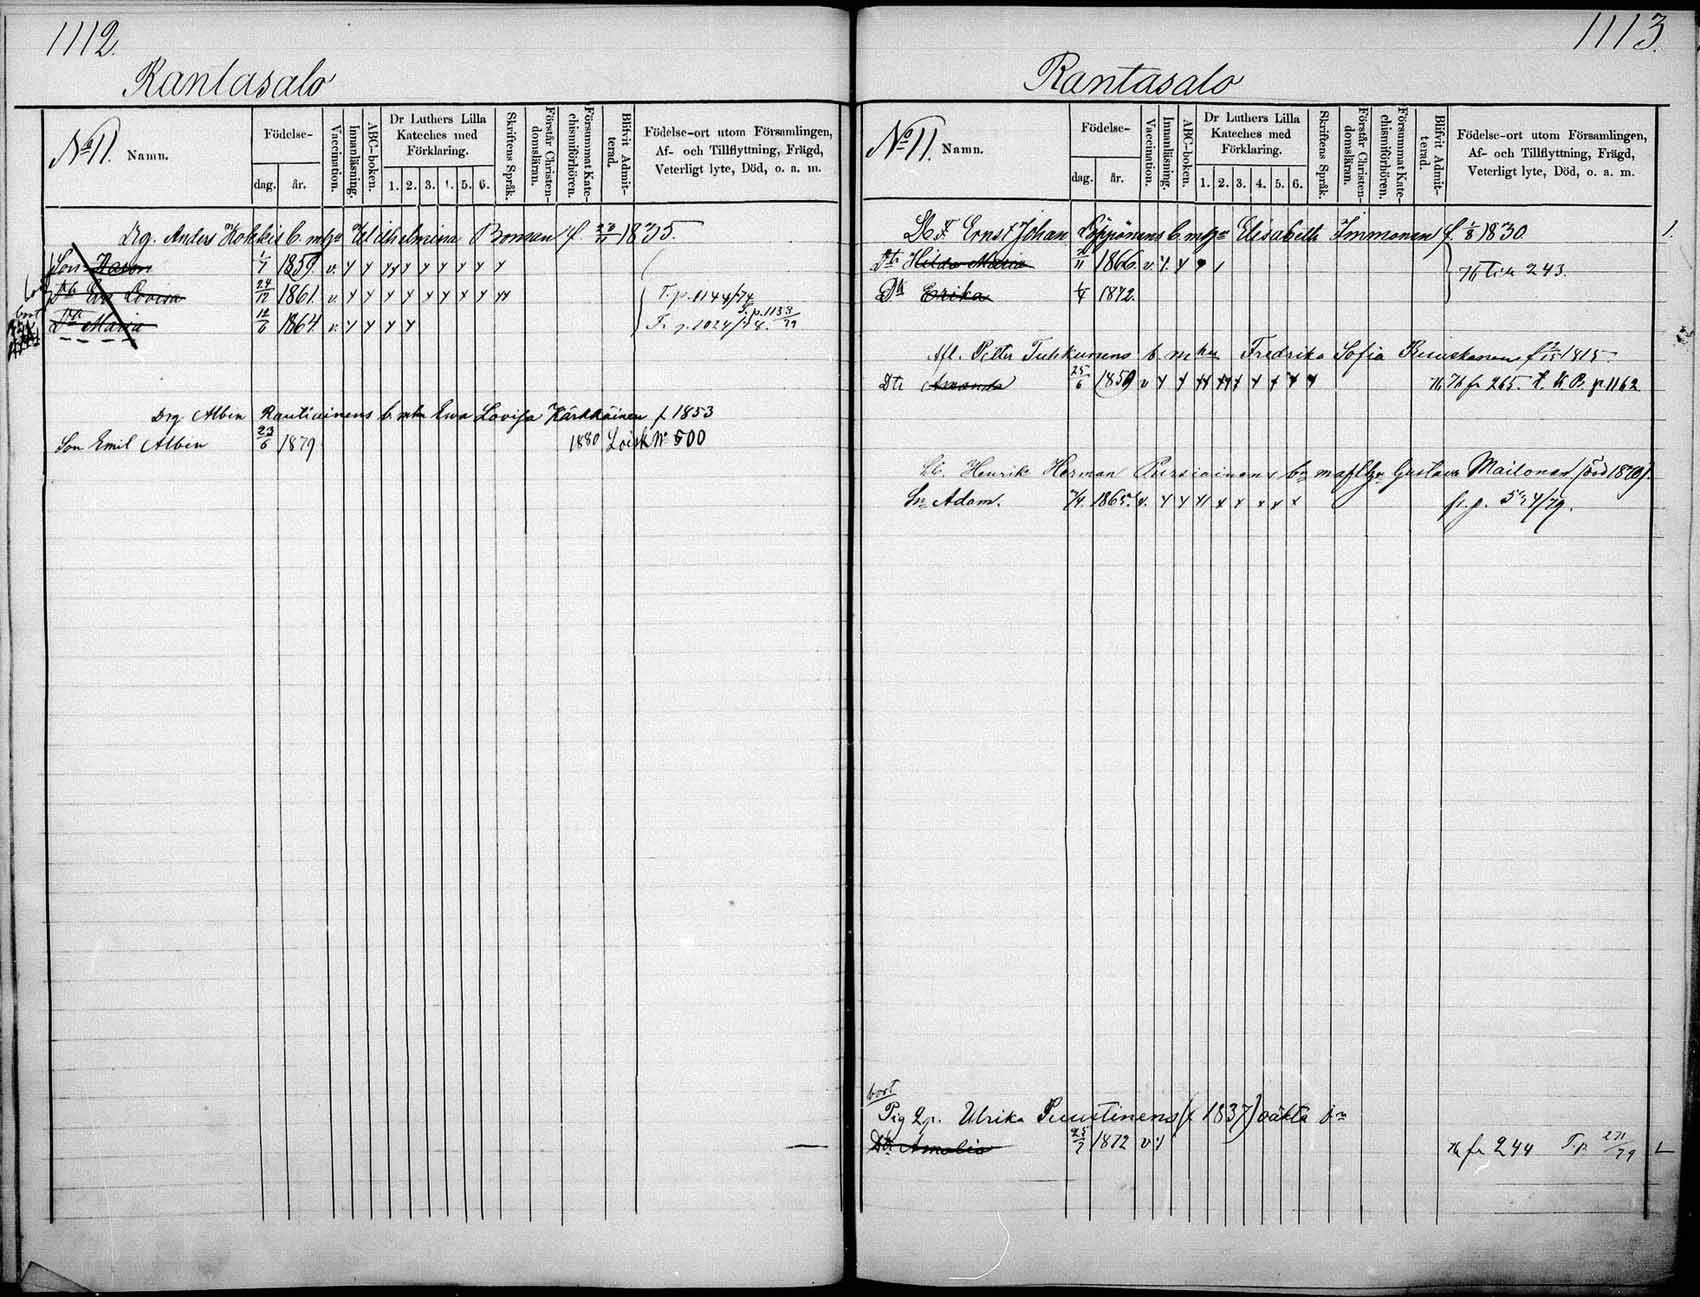 1112.
Rantasalo
No 11. Namn.
Födelse-
dag. år.
Vaccination.
Innanläsning.
ABC-boken.
Dr Luthers Lilla
Kateches med
Förklaring.
1. 2. 3. 4. 5. 6.
Skriftens Språk.
Förstår Christen-
domsläran.
Försummat Kate-
chismiförhören.
Blifvit Admit-
terad.
Födelse-ort utom Församlingen,
Af- och Tillflyttning, Frägd,
Veterligt lyte, Död, o. a. m.
Drg. Anders Hokkis b. m hu Wilhelmina Boman f. 1835.
Son 1/7 1859 v.
Dtr Eva Lovisa 24/12 1861 v. T. p. 1144/74
Dtr Maria 12/6 1864 v. Fr. p. 1024/74. T. p. 1133/79
bort
Drg Albin Rautiainens b. m hu Ewa Lovisa Kärkkäinen f 1853
Son Emil Albin 23/6 1879 1880 Loisk No 500
1113.
Rantasalo
No 11. Namn.
Födelse-
dag. år.
Vaccination.
Innanläsning.
ABC-boken.
Dr Luthers Lilla
Kateches med
Förklaring.
1. 2. 3. 4. 5. 6.
Skriftens Språk.
Förstår Christen-
domsläran.
Försummat Kate-
chismiförhören.
Blifvit Admit-
terad.
Födelse-ort utom Församlingen,
Af- och Tillflyttning, Frägd,
Veterligt lyte, Död, o. a. m.
Ernst Johan Löppönens b. m hu Elisabeth Immonen f. 1/8 1830. 1.
Dtr Hilda Maria 1866 v. 76 243.
Dtr Erika 1872.
Afl. Petter Tuhkunens b. m hu Fredrika Sofia f 1815
Dtr Amanda 25/6 1859 v 76 fr 265. t. K B. p 1162
Henrik Herman Pursiainens b m afl hu Gustava Mailonen 1870
Sn Adam. 1865. v. fr. p.
bort
Pig Ulrika Puustinens (f 1837) oäkta
Dtr Amalia 25/7 1872 v 76 fr 244 T. p. 271/79